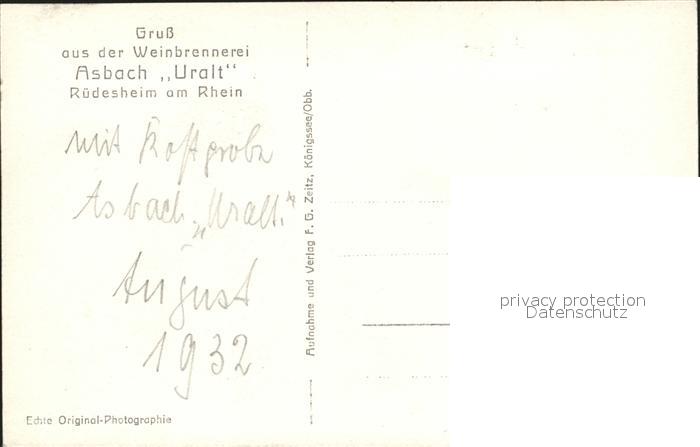 Gruß
aus der Weinbrennerei
Asbach „Uralt“
Rüdesheim am Rhein
mit Kostprobe
Asbach „Uralt.“
August
1932
Echte Original-Photographie
Aufnahme und Verlag F. G. Zeitz, Königssee/Obb.
privacy protection
Datenschutz